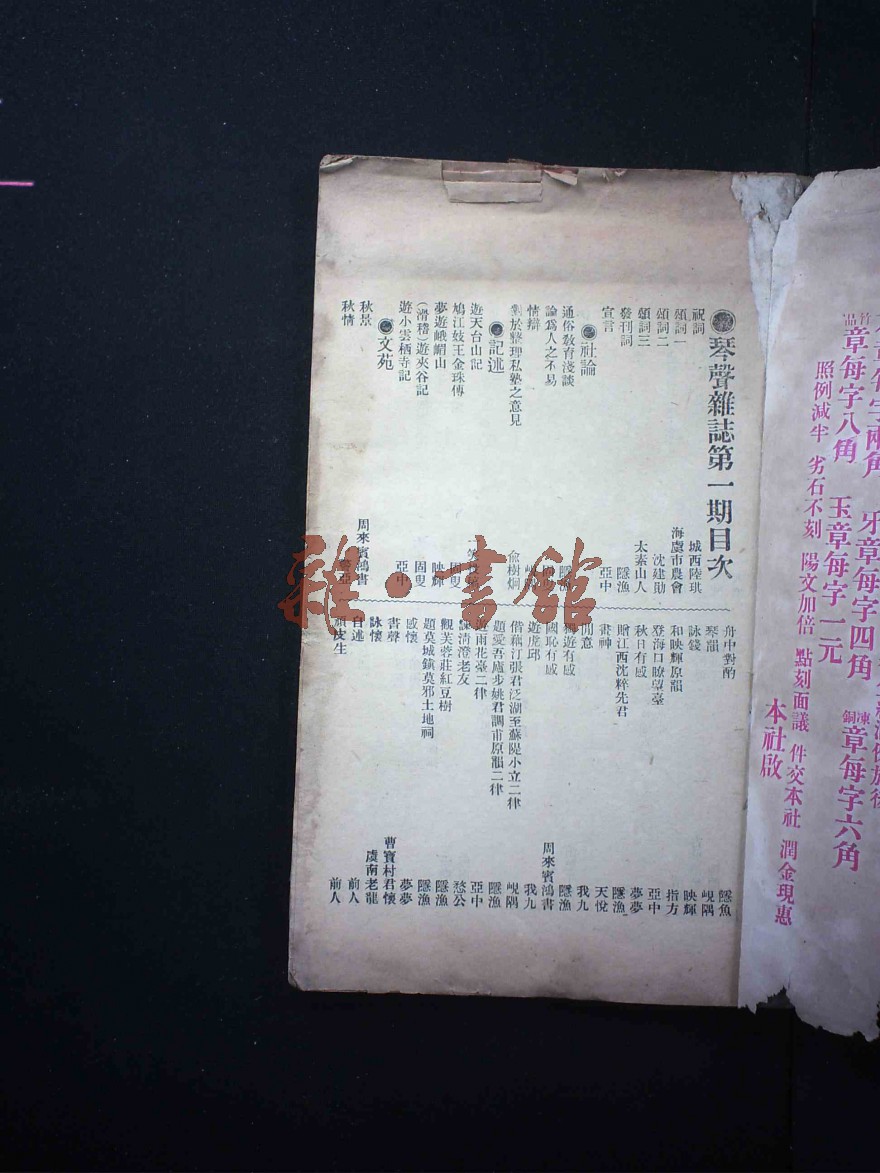 本社啟
照例減半 劣石不刻 陽文加倍 點刻面議 件交本社 潤金現惠
竹品章每字八角 玉章每字一元 凍銅章每字六角
章每字兩角 牙章每字四角
琴聲雜誌第一期目次
祝詞 城西陸琪
頌詞一 海虞市農會
頌詞二 沈建勛
頌詞三 太素山人
發刊詞 隱漁
宣言 亞中
社論
通俗教育淺談 隱漁
論爲人之不易
情辯
對於整理私塾之意見 俞樹炯
記述
遊天台山記
鳩江妓王金珠傳 固叟
夢遊峨嵋山 映輝
(滑稽)遊夾谷記 固叟
遊小雲栖寺記 亞中
文苑
秋景 周來賓鴻書
秋情
舟中對酌 隱魚
琴韻 峴隅
詠錢 映輝
和映輝原韻 指方
登海口瞭望臺 亞中
秋日有感 夢夢
贈江西沈粹先君 隱漁
書神 天悅
閒意 我九
遊有感 隱漁
國恥有感 周來賓鴻書
遊虎邱 我九
偕藕汀張君泛湖至蘇隄小立二律 峴隅
題愛吾廬步姚君調甫原韻二律 隱漁
遊雨花臺二律 亞中
清澄老友 愁公
觀芙蓉莊紅豆樹 隱漁
題莫城鎮莫邪土地祠 隱漁
感懷 夢夢
書聲 曹寶村君懷
詠懷 虞南老龍
自述 前人
皮生 前人
雜·書館